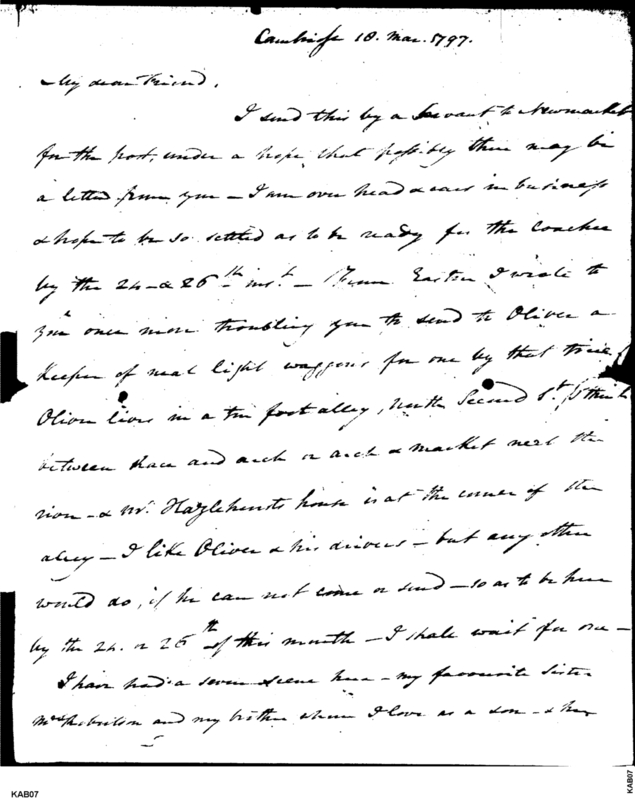 Cambridge 18. Mar. 1797.
My dear Friend,
I send this by a Servant to Newmarket
for the post, under a hope that possibly there may be
a letter from you – I am over head & ears in business
& hope to be so settled as to be ready for the coachee
by the 24 – a 26th inst – From Easton I wrote to
you once more troubling you to send to Oliver a
Keeper of neat light waggons for one by that time
Oliver lives in a ten foot alley, North Second St. I think
between Race and arch or arch & market next the
river – & Mr. Hazlehursts house is at the corner of the
alley – I like Oliver & his drivers – but any other
would do, if he can not come or send – so as to be here
by the 24. or 26th of this month – I shall wait for one –
I have had a severe scene here – my favourite Sister
Mrs Robertson and my brother whom I love as a son – & her
KAB07
KAB07